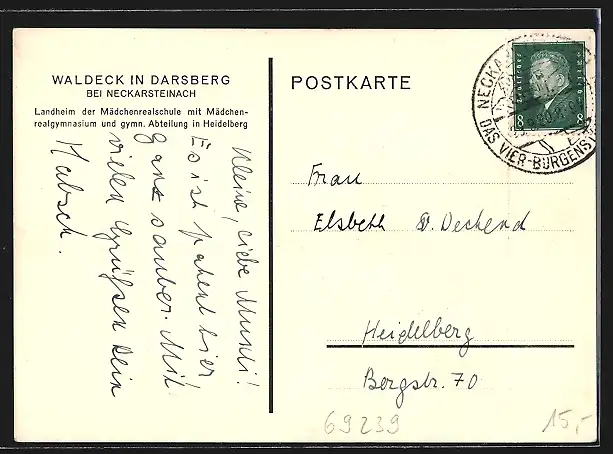 WALDECK IN DARSBERG
BEI NECKARSTEINACH
Landheim der Mädchenrealschule mit Mädchen-
realgymnasium und gymn. Abteilung in Heidelberg
Meine, liebe Mutti!
Es ist patent hier,
ganz sauber. Mit
vielen Grüßen Dein
Habsch.
POSTKARTE
Frau
Elsbeth v. Dechend
Heidelberg
Bergstr. 70
69239
15,-
Deutsches Reich
8 8
NECKA
DAS VIER-BURGENST